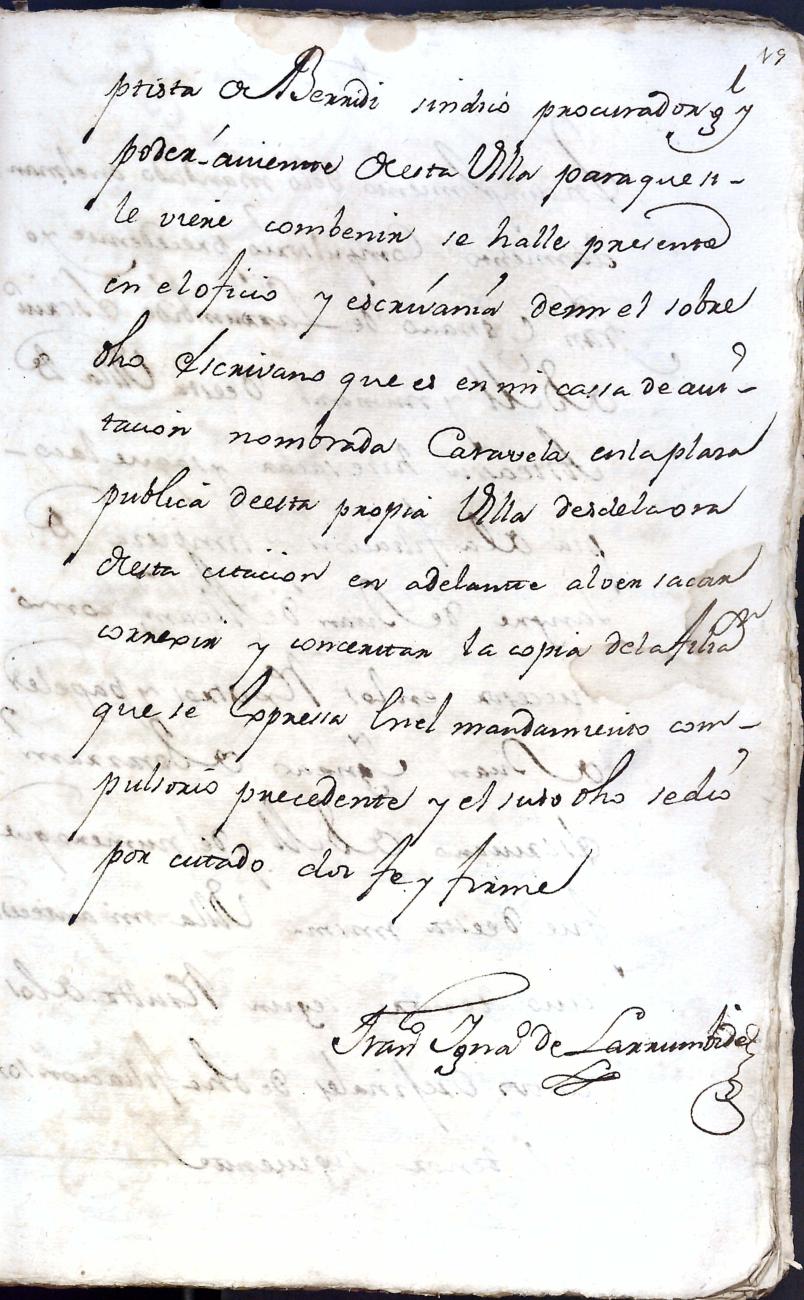 19
ptista de Berridi sindico procurador gl y
poder-aviente desta Villa para que si-
le viere combenir se halle presente
en el oficio y escrivania demi el sobre
dho Escrivano que es en mi cassa de avi-
tacion nombrada Caravela en la plaza
publica de esta propia Villa desde la ora
desta citacion en adelante al ver sacar
correxir y concertar la copia de la filiaon
que se Expressa En el mandamiento com-
pulsorio precedente y el suso dho se dio
por citado doi fe y firme
Frano Ignao de Larrumbide